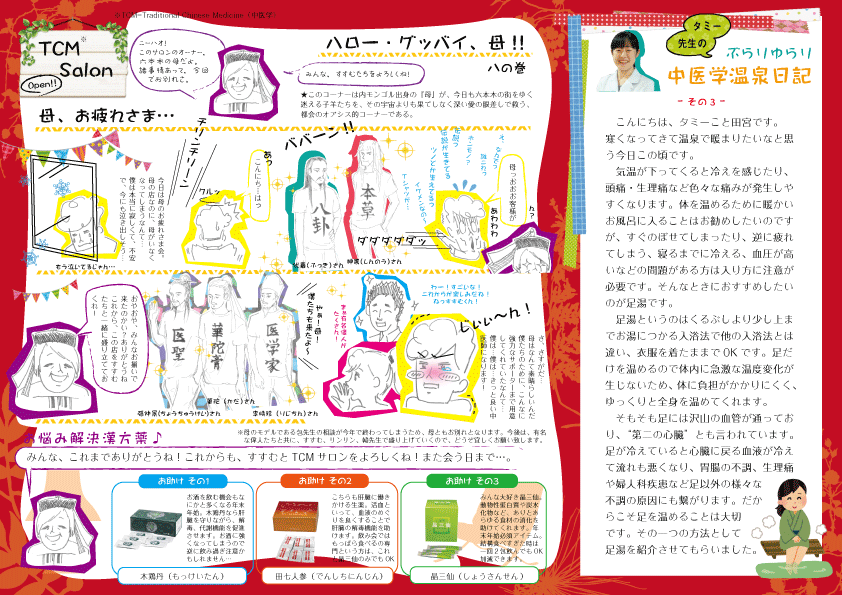 ※TCM=Traditional Chinese Medicine（中医学）
TCM※
Salon
Open!!
ニーハオ！
このサロンのオーナー。
六本木の母だよ。
諸事情あって、今回
でお別れで。
みんな、すすむたちをよろしくね！
ハロー・グッバイ、母!!
八の巻
★このコーナーは内モンゴル出身の『母』が、今日も六本木の街をゆく
迷える子羊たちを、その宇宙よりも果てしなく深い愛の眼差しで救う、
都会のオアシス的コーナーである。
母、お疲れさま…
今日は母のお疲れさま会。
母の店なのに、母がいなく
なってしまうなんて…。
僕は本当に寂しくて、不安
で、今にも泣き出しそう…
もう泣いてるじゃん…
チリンチリーン
クルッ
あっ
こんにち…はっ
ババーン!!
八卦
本草
伏羲(ふっき)さん
神農(しんのう)さん
ダダダダダッ
母っおおお客様が
あわわわ
ん？
おやおや、みんなお揃いで
来たのかい？ありがとうね
これから、この店をすすむ
たちと一緒に盛り立ててお
くれ
医聖
華陀膏
医学家
張仲景(ちょうちゅうけい)さん
華佗(かだ)さん
李時珍(りじちん)さん
やぁ！母！
僕たちも来たよ〜
わー！すごいな！
これからが楽しみだね！
ねっすすむくん！
すごい有名偉人が
たくさん！
じぃぃ〜ん！
さ、さすがだ…
母はなんて素晴らしいんだ
僕たちのために、こんなに
強力なサポーターまで用意
してくれていたなんて…
僕は…僕は…きっと良い中
医師になります！
※母のモデルである包先生の相談が今年で終わってしまうため、母ともお別れとなります。今後は、有名
な偉人たちと共に、すすむ、リンリン、崎先生で盛り上げていくので、どうぞ宜しくお願い致します。
お悩み解決漢方薬♪
みんな、これまでありがとうね！これからも、すすむとTCMサロンをよろしくね！また会う日まで…。
お助け その1
お酒を飲む機会もな
にかと多くなる年末
年始。木鶏丹なら肝
臓を守りながら、解
毒、代謝機能を促進
させます。お酒に強
くなってしまうので
逆に飲み過ぎ注意か
もしれません…
木鶏丹（もっけいたん）
お助け その2
こちらも肝臓に働き
かける生薬。活血と
いって、血液のめぐ
りを良くすることで
肝臓の解毒機能を助
けます。飲み会では
もっぱら食べるの専
門という方は、これ
と晶三仙のみでもOK
田七人参（でんしちにんじん）
お助け その3
みんな大好き晶三仙。
動物性蛋白質や炭水
化物など、ありとあ
らゆる食材の消化を
助けてくれます。年
末年始必須アイテム。
結構食べすぎた時は
一回2包飲んでもOK
加減できます。
晶三仙（しょうさんせん）
タミー
先生の
ぶらりゆらり
中医学温泉日記
- その3 -
こんにちは、タミーこと田宮です。
寒くなってきて温泉で暖まりたいなと思
う今日この頃です。
気温が下ってくると冷えを感じたり、
頭痛・生理痛など色々な痛みが発生しや
すくなります。体を温めるために暖かい
お風呂に入ることはお勧めしたいのです
が、すぐのぼせてしまったり、逆に疲れ
てしまう、寝るまでに冷える、血圧が高
いなどの問題がある方は入り方に注意が
必要です。そんなときにおすすめしたい
のが足湯です。
足湯というのはくるぶしより少し上ま
でお湯につかる入浴法で他の入浴法とは
違い、衣服を着たままでOKです。足だ
けを温めるので体内に急激な温度変化が
生じないため、体に負担がかかりにくく、
ゆっくりと全身を温めてくれます。
そもそも足には沢山の血管が通ってお
り、“第二の心臓”とも言われています。
足が冷えていると心臓に戻る血液が冷え
て流れも悪くなり、胃腸の不調、生理痛
や婦人科疾患など足以外の様々な
不調の原因にも繋がります。だか
らこそ足を温めることは大切
です。その一つの方法として
足湯を紹介させてもらいました。